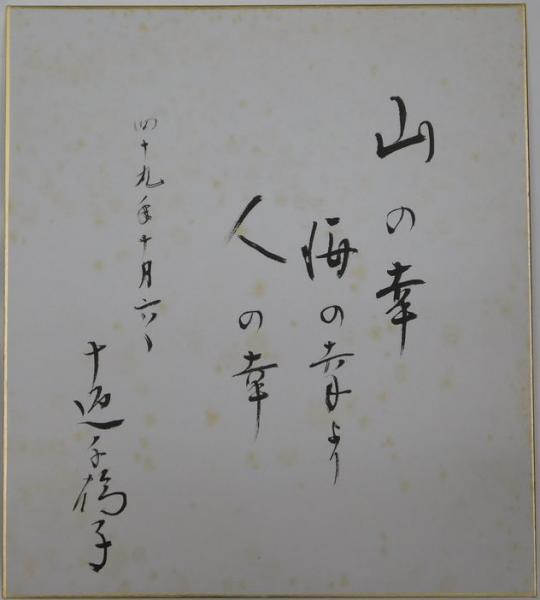 山の幸
海の幸より
人の幸
四十九年十月六日
十返千鶴子